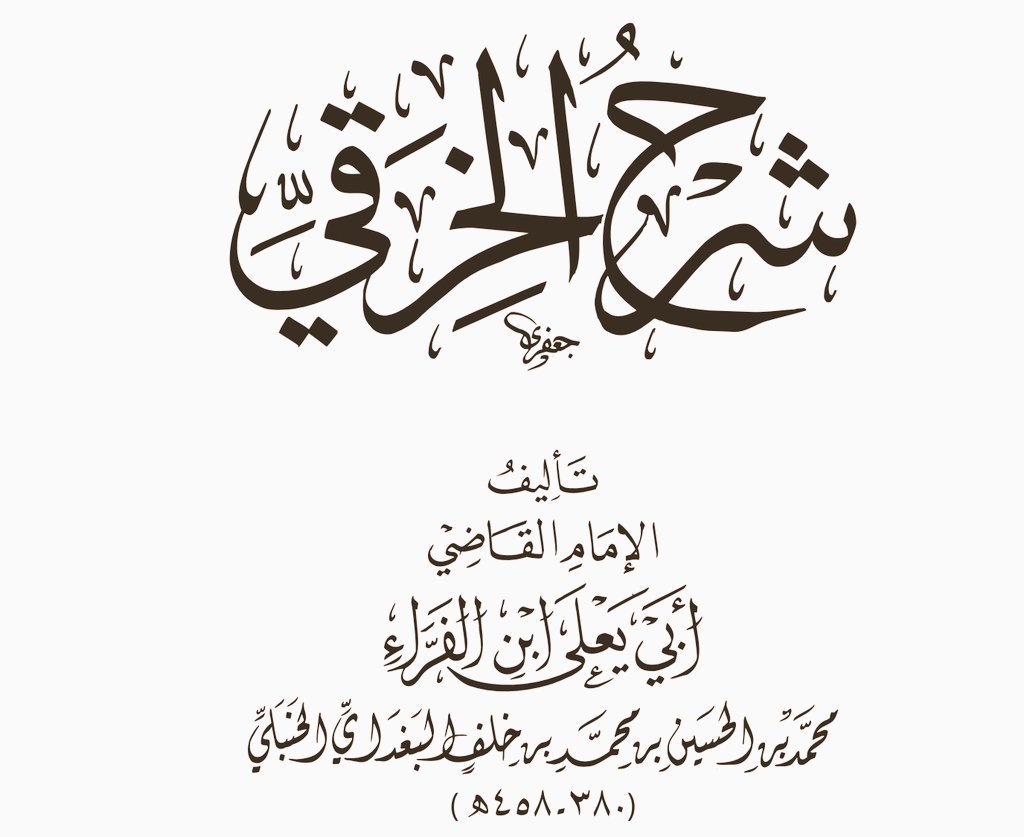 شَرْحُ الخِرَقِيِّ
جعفري
تَأليفُ
الإمَامِ القَاضِيْ
أَبيْ يَعْلَى ابْنِ الفَرَّاءِ
محمَّد بْنِ الحُسَينِ بنِ محمَّدِ بنِ خلفٍ البَغدَاديِّ الحَنبَليِّ
(٣٨٠-٤٥٨هـ)